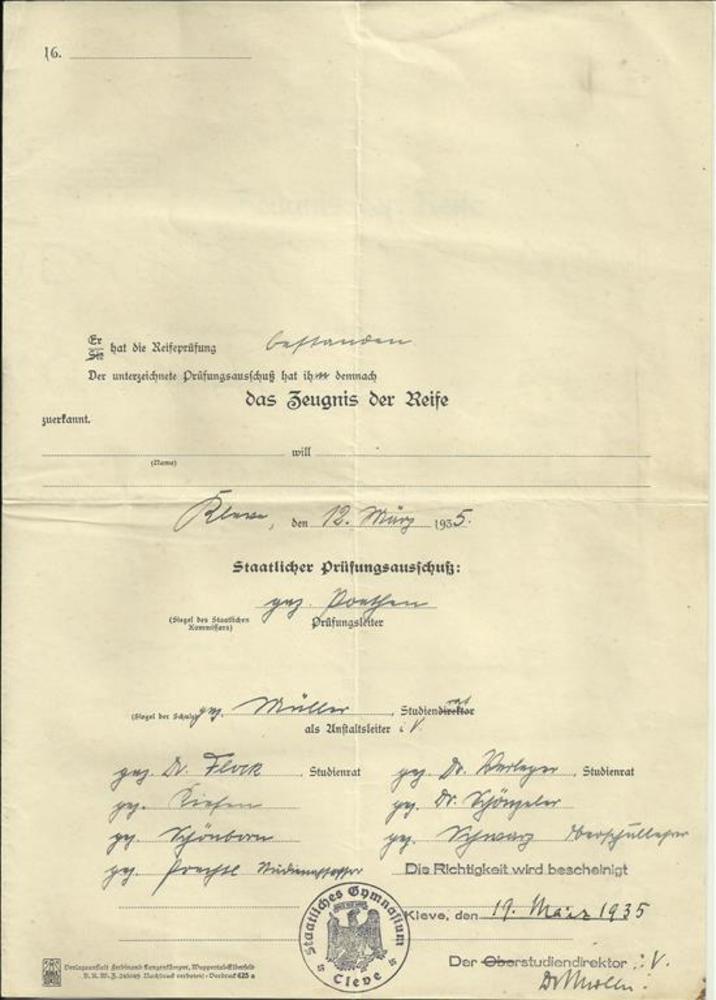 16.
Er
Sie hat die Reifeprüfung bestanden
Der unterzeichnete Prüfungsausschuß hat ihm demnach
das Zeugnis der Reife
zuerkannt.
will
(Name)
Kleve, den 12. März 1935.
Staatlicher Prüfungsausschuß:
gez. Poethen
(Siegel des Staatlichen Kommissars) Prüfungsleiter
(Siegel der Schule) gez. Müller, Studiendirektor rat
als Anstaltsleiter i. V.
gez. Dr. Flock, Studienrat gez. Dr. Verleger, Studienrat
gez. gez. Dr.
gez. Schönborn gez. Schwarz Oberschullehrer
gez. Studienassessor Die Richtigkeit wird bescheinigt
Staatliches Gymnasium Cleve
Kleve, den 19. März 1935
Der Oberstudiendirektor i. V.
Dr Müller
Verlagsanstalt Ferdinand Langenkämper, Wuppertal-Elberfeld
Nachdruck verboten - Vordruck 425 a